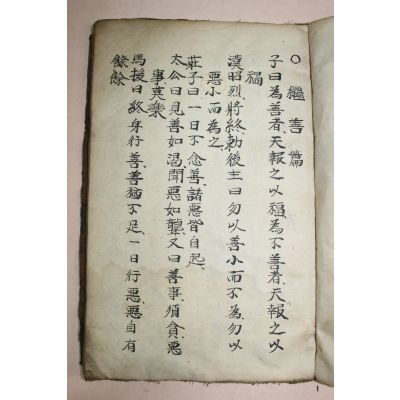 ○繼善篇
子曰為善者天報之以福為不善者天報之以
福
漢昭烈將終勅後主曰勿以善小而不為勿以
惡小而為之
莊子曰一日不念善諸惡皆自起
太公曰見善如渴聞惡如聾又曰善事須貪惡
事莫樂
馬援曰終身行善善猶不足一日行惡惡自有
餘餘